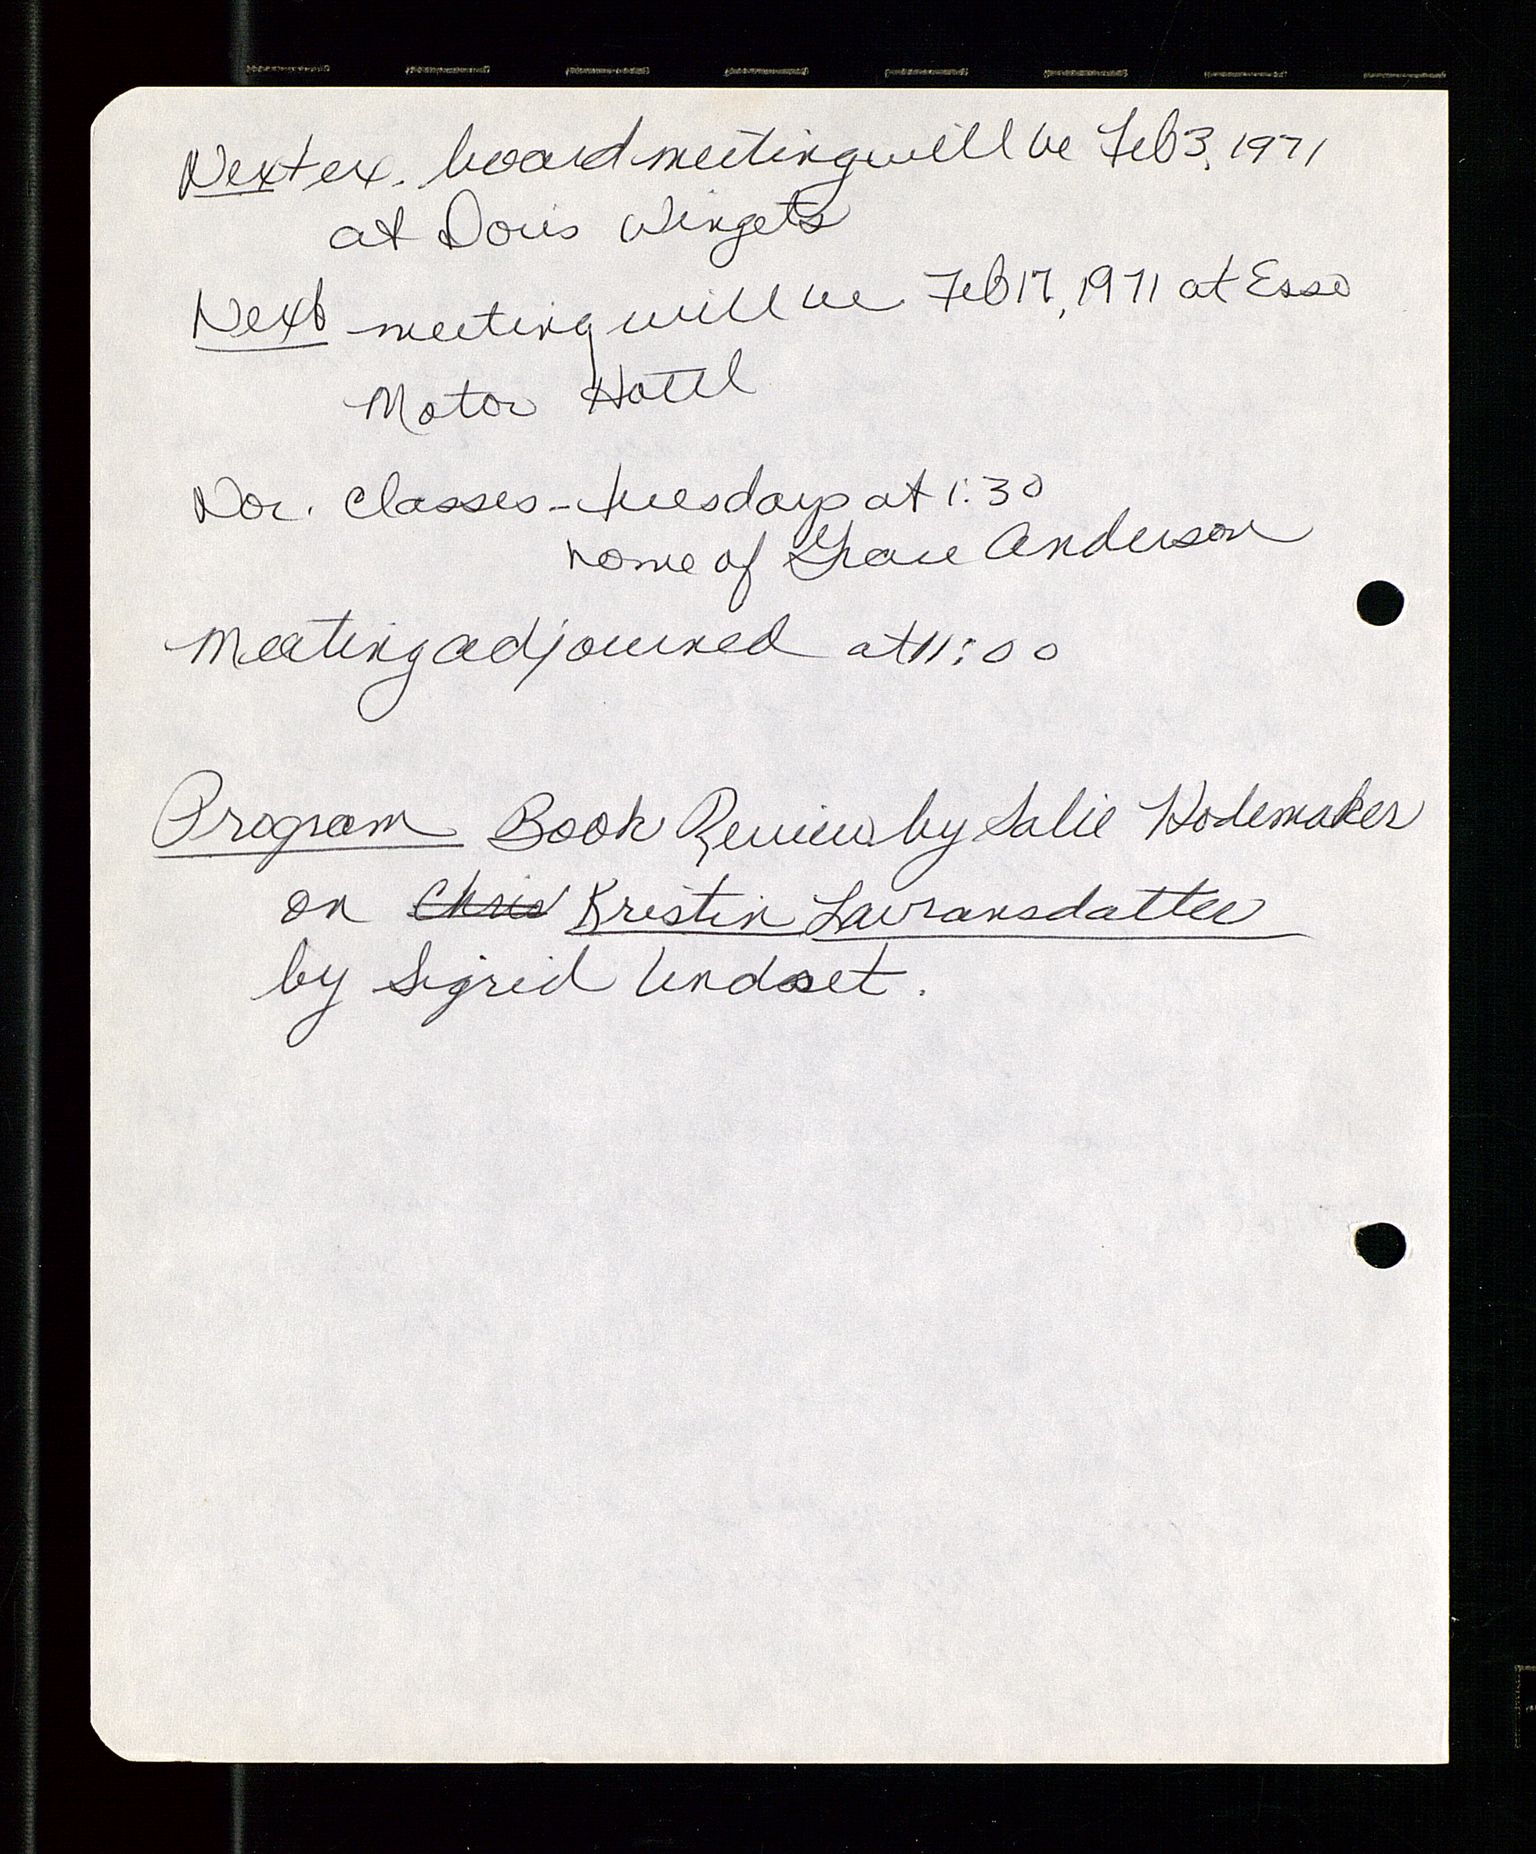 Next ex. board meeting will be Feb 3, 1971
at Doris Wingets
Next meeting will be Feb 17, 1971 at Esso
Motor Hotel
Nor. classes - tuesdays at 1:30
home of Grace Anderson
Meeting adjourned at 11:00
Program Book Review by Salie Hodemaker
on Chris Kristin Lavransdatter
by Sigrid Undset.